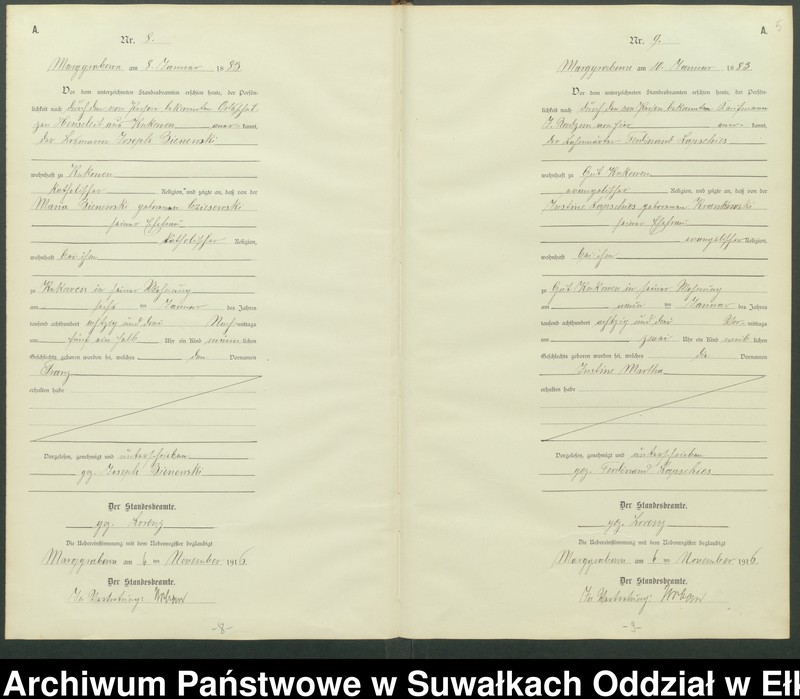 A.
Nr. 8.
Marggrabowa am 8. Januar 1883
Vor dem unterzeichneten Standesbeamten erschien heute, der Persön-
lichkeit nach durch den von Person bekannten Ortsschul
zen aus Kukowen aner- kannt,
der Losmann Joseph Bienewski
wohnhaft zu Kukowen
katholischer Religion, und zeigte an, daß von der
Maria Bienewski geborenen
seiner Ehefrau
katholischer Religion,
wohnhaft bei ihm
zu Kukowen in seiner Wohnung
am sechs ten Januar des Jahres
tausend achthundert achtzig und drei Nach mittags
um fünf ein halb Uhr ein Kind männ lichen
Geschlechts geboren worden sei, welches den Vornamen
Franz
erhalten habe
Vorgelesen, genehmigt und unterschrieben
gez. Joseph Bienewski
Der Standesbeamte.
gez. Lorenz
Die Uebereinstimmung mit dem Nebenregister beglaubigt
Marggrabowa am 6 ten November 1916
Der Standesbeamte.
In Vertretung:
-8-
A.
5
Nr. 9.
Marggrabowa am 10. Januar 1883
Vor dem unterzeichneten Standesbeamten erschien heute, der Persön-
lichkeit nach durch den von Person bekannten Kaufmann
von hier aner- kannt,
der Ferdinand Kapschies
wohnhaft zu Gut Kukowen
evangelischer Religion, und zeigte an, daß von der
Justine Kapschies geborenen
seiner Ehefrau
evangelischer Religion,
wohnhaft bei ihm
zu Gut Kukowen in seiner Wohnung
am neun ten Januar des Jahres
tausend achthundert achtzig und drei Vor mittags
um zwei Uhr ein Kind weib lichen
Geschlechts geboren worden sei, welches die Vornamen
Justine Martha
erhalten habe
Vorgelesen, genehmigt und unterschrieben
gez. Ferdinand Kapschies
Der Standesbeamte.
gez. Lorenz
Die Uebereinstimmung mit dem Nebenregister beglaubigt
Marggrabowa am 6 ten November 1916
Der Standesbeamte.
In Vertretung:
-9-
Archiwum Państwowe w Suwałkach Oddział w Eł